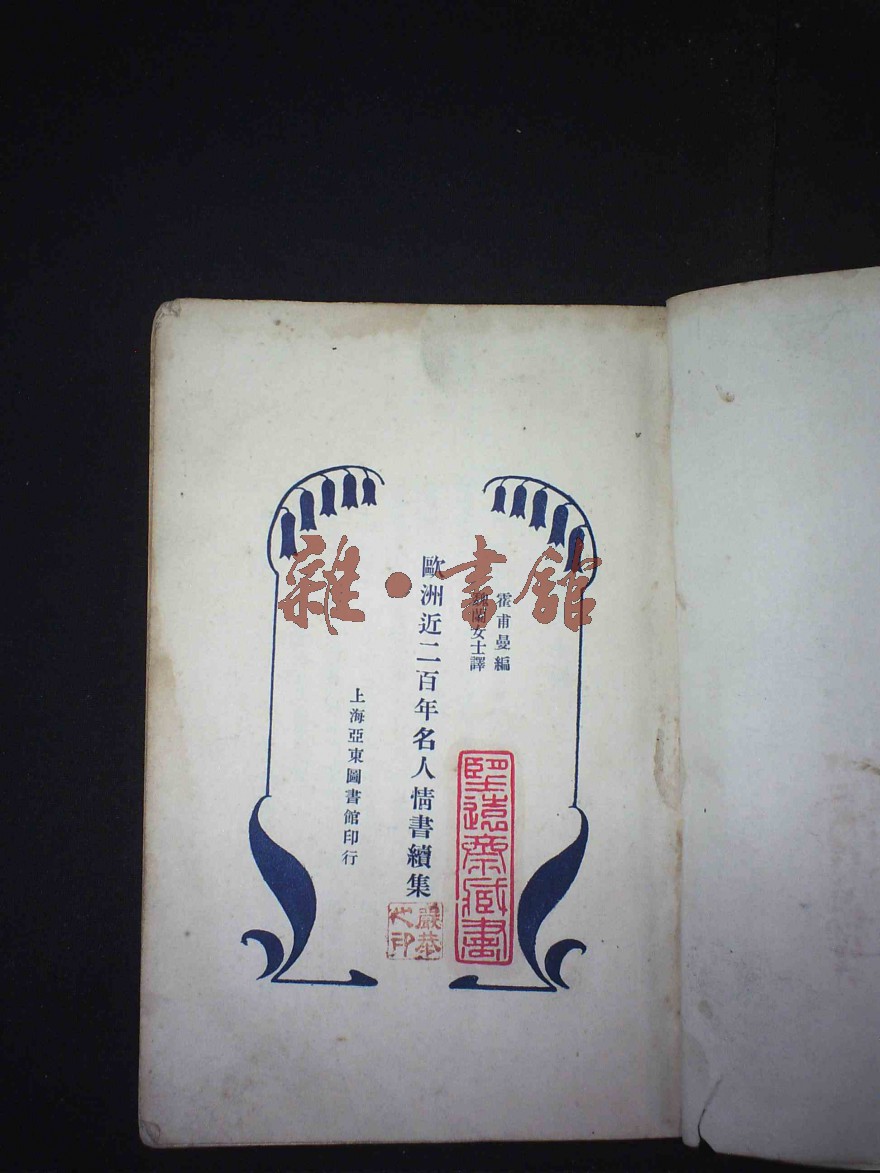 霍甫曼編
魏蘭女士譯
歐洲近二百年名人情書續集
上海亞東圖書館印行
雜·書館
堅遠齋藏書
嚴恭之印